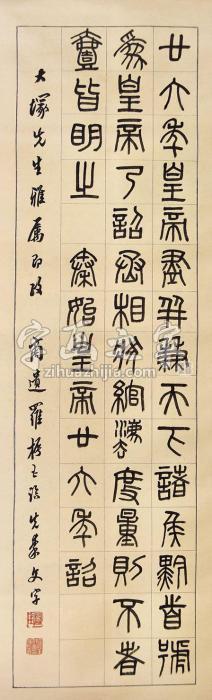 廿六年皇帝盡并兼天下諸侯黔首號
為皇帝乃詔丞相狀綰灋度量則不者
壹皆明之 秦始皇帝廿六年詔
大塚先生雅屬即政 商遺羅振玉臨先秦文字
字画之家
zihuazhijia.com